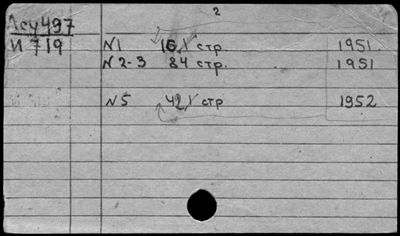 2
Асу497
И 719 N1 16 стр. 1951.
N2-3 84 стр. 1951
N5 42 стр 1952